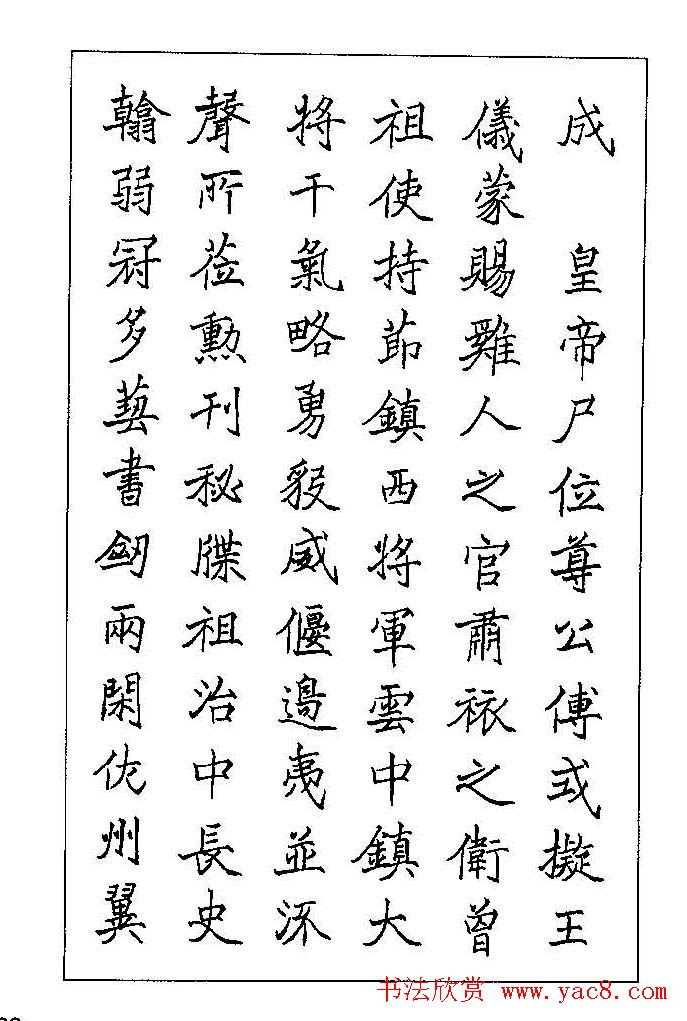 成 皇帝尸位尊公傅式擬王
儀蒙賜雞人之官肅旅之衛曾
祖使持節鎮西將軍雲中鎮大
將干氣略勇毅威偃邊夷並流
聲所莅勳刊秘牒祖治中長史
翰弱冠多藝書劍兩閑佐州翼
书法欣赏 www.yac8.com